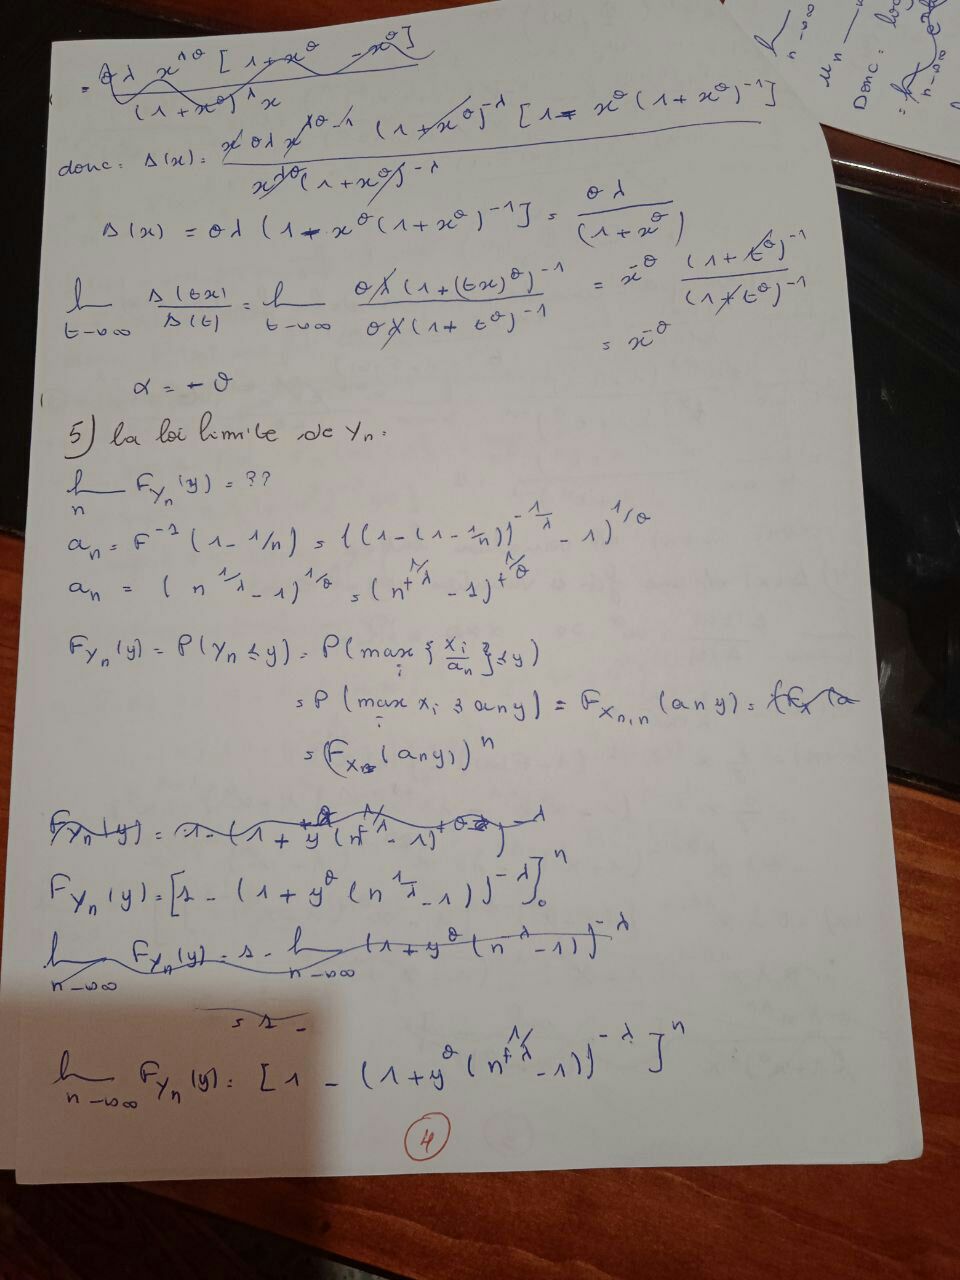 = θλ x^{λθ} [1 + x^θ - x^θ] / (1 + x^θ)^λ x
donc: Δ(x) = x θλ x^{λθ-1} (1 + x^θ)^{-λ} [1 - x^θ (1 + x^θ)^{-1}] / x^{λθ} (1 + x^θ)^{-λ}
Δ(x) = θλ (1 - x^θ (1 + x^θ)^{-1}] = θλ / (1 + x^θ)
lim t→∞ Δ(tx)/Δ(t) = lim t→∞ θλ (1 + (tx)^θ)^{-1} / θλ (1 + t^θ)^{-1} = x^{-θ} (1 + t^θ)^{-1} / (1 + t^θ)^{-1}
= x^{-θ}
α = - θ
5) la loi limite de Yn.
lim n F_{Yn}(y) = ??
an = F^{-1} (1 - 1/n) = ((1 - (1 - 1/n))^{-1/λ} - 1)^{1/θ}
an = (n^{1/λ} - 1)^{1/θ} = (n^{+1/λ} - 1)^{+1/θ}
F_{Yn}(y) = P(Yn ≤ y) = P(max i {Xi/an} ≤ y)
= P (max i xi ≤ an y) = F_{Xn,n} (an y) = (Fx (a
= (F_X (an y))^n
F_{Yn}(y) = [1 - (1 + y^θ (n^{1/λ} - 1))^{-λ}]^n
lim n→∞ F_{Yn}(y) = 1 - lim n→∞ (1 + y^θ (n^λ - 1))^{-λ}
= 1 -
lim n→∞ F_{Yn}(y) = [1 - (1 + y^θ (n^{+1/λ} - 1))^{-λ}]^n
4
n→∞
Donc:
n→∞